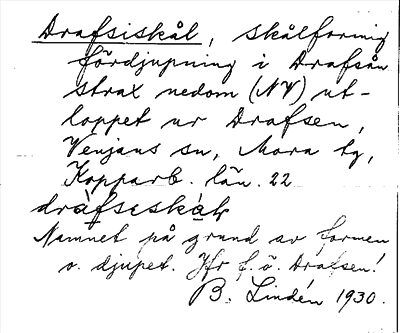 Drafsiskål, skålformig
fördjupning i Drafsån
strax nedom (NV) ut-
loppet ur Drafsen,
Venjans sn, Mora tg,
Kopparb. län. 22
Namnet på grund av formen
o. djupet. Jfr f. ö. Drafsen!
B. Lindén 1930.